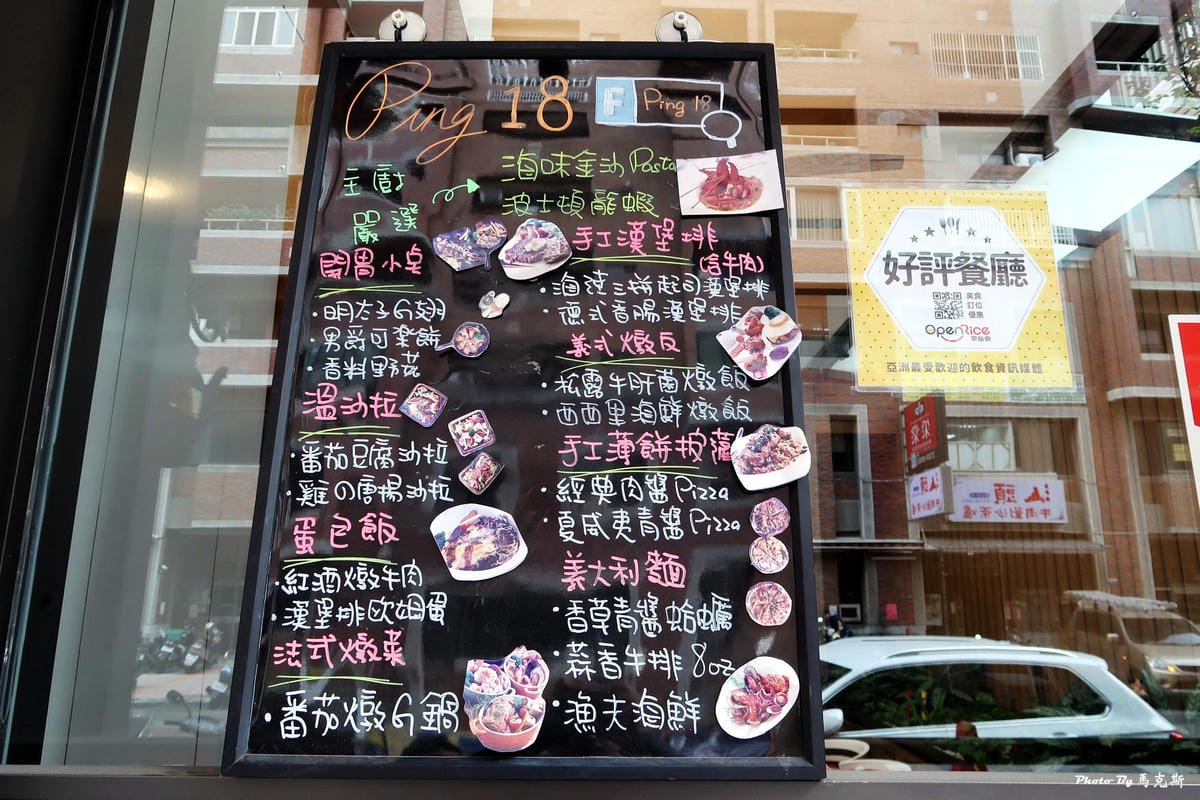 Ping 18
F Ping 18
主廚
嚴選
海味金沙 Pasta
波士頓龍蝦
開胃小点
・明太子G翅
・男爵可楽餅
・香料野菇
溫沙拉
・番茄豆腐沙拉
・雞の廣場沙拉
蛋包飯
・紅酒燉牛肉
・漢堡排欧姆蛋
法式燉菜
・番茄燉G鍋
手工漢堡排
(含牛肉)
・海陸三拼起司漢堡排
・德式香腸漢堡排
義式燉飯
・松露牛肝菌燉飯
・西西里海鮮燉飯
手工薄餅披薩
・經典肉醬Pizza
・夏威夷青醬Pizza
義大利麵
・香草青醬蛤蠣
・蒜香牛排 8oz
・漁夫海鮮
好評餐廳
美食
訂位
優惠
OpenRice
開飯喇
亞洲最受歡迎的飲食資訊媒體
汕頭
Photo By 馬克斯